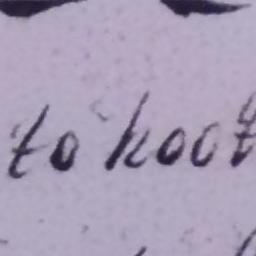 to koot